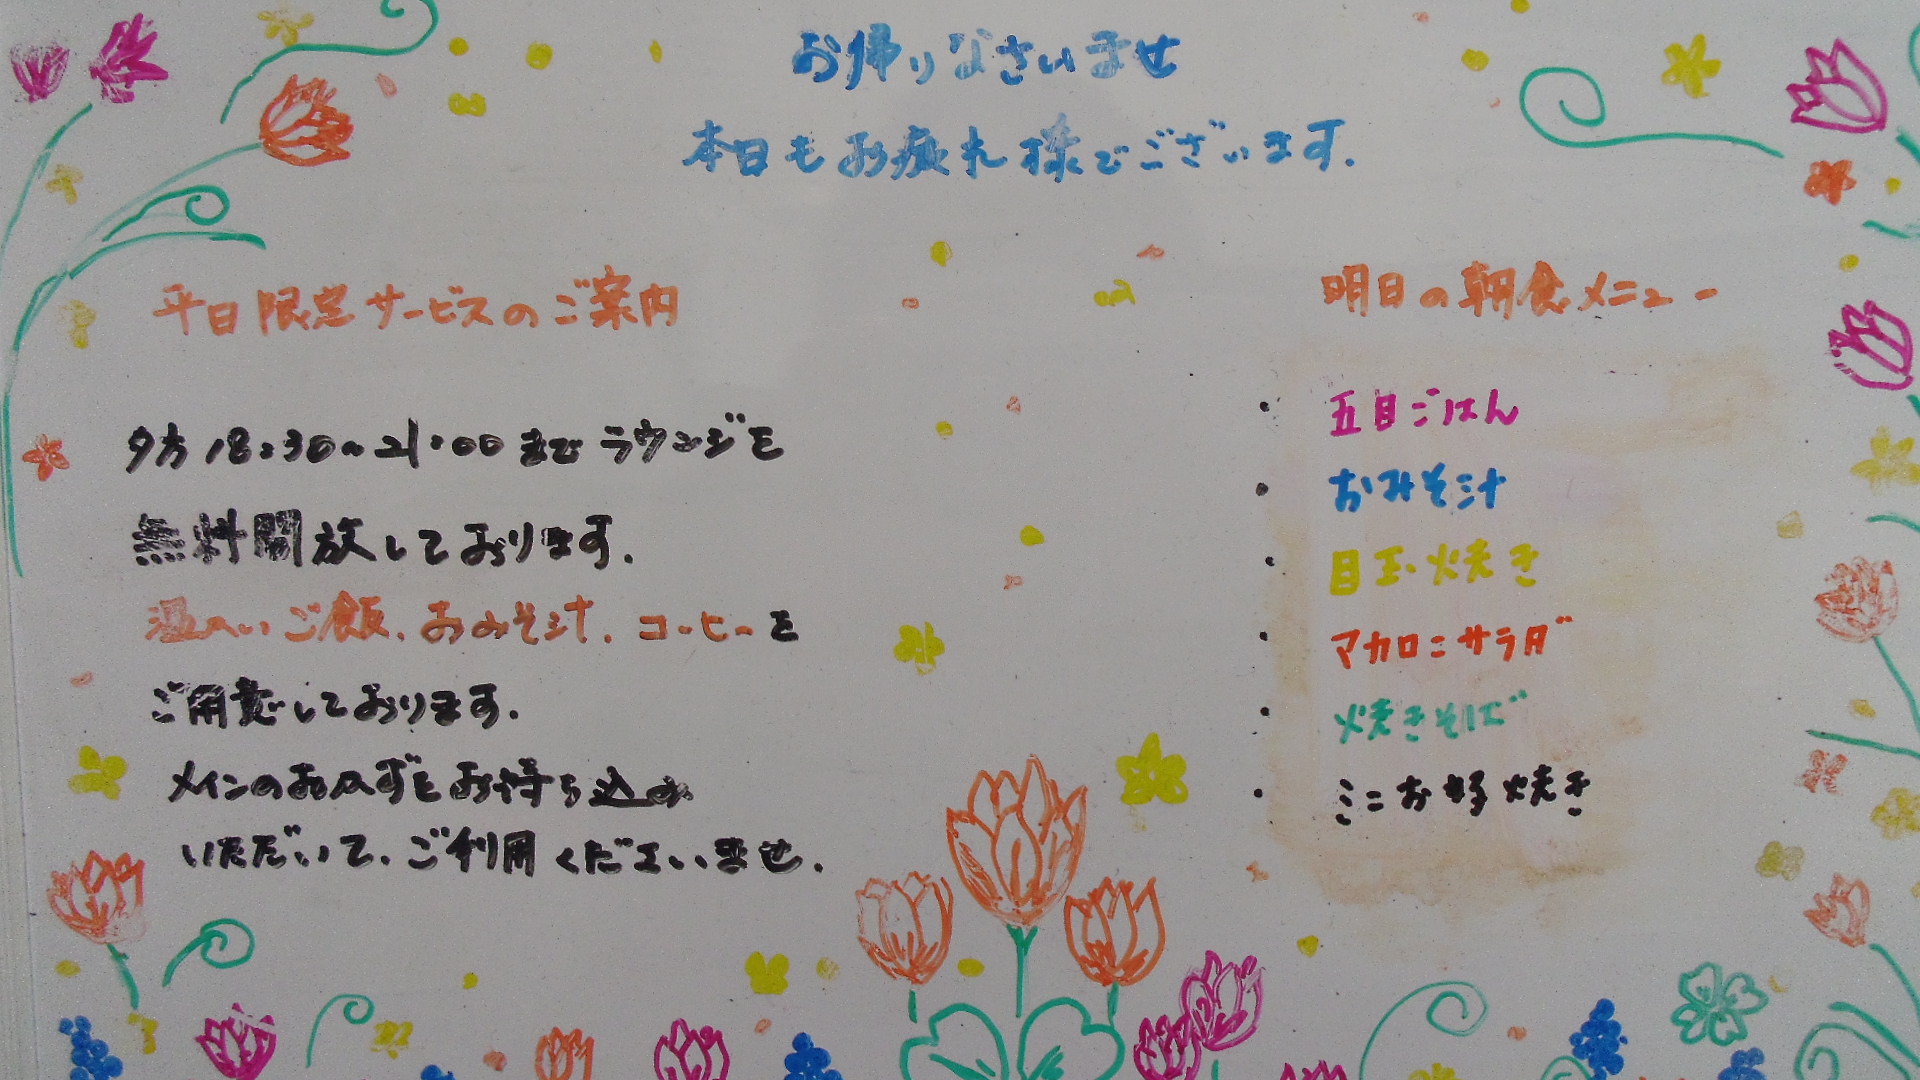 お帰りなさいませ
本日もお疲れ様でございます.
平日限定サービスのご案内
夕方18:30〜21:00までラウンジを
無料開放しております.
温かいご飯、おみそ汁、コーヒーを
ご用意しております.
メインのおかずをお持ち込み
いただいて、ご利用くださいませ.
明日の朝食メニュー
・五目ごはん
・おみそ汁
・目玉焼き
・マカロニサラダ
・焼きそば
・ミニお好焼き